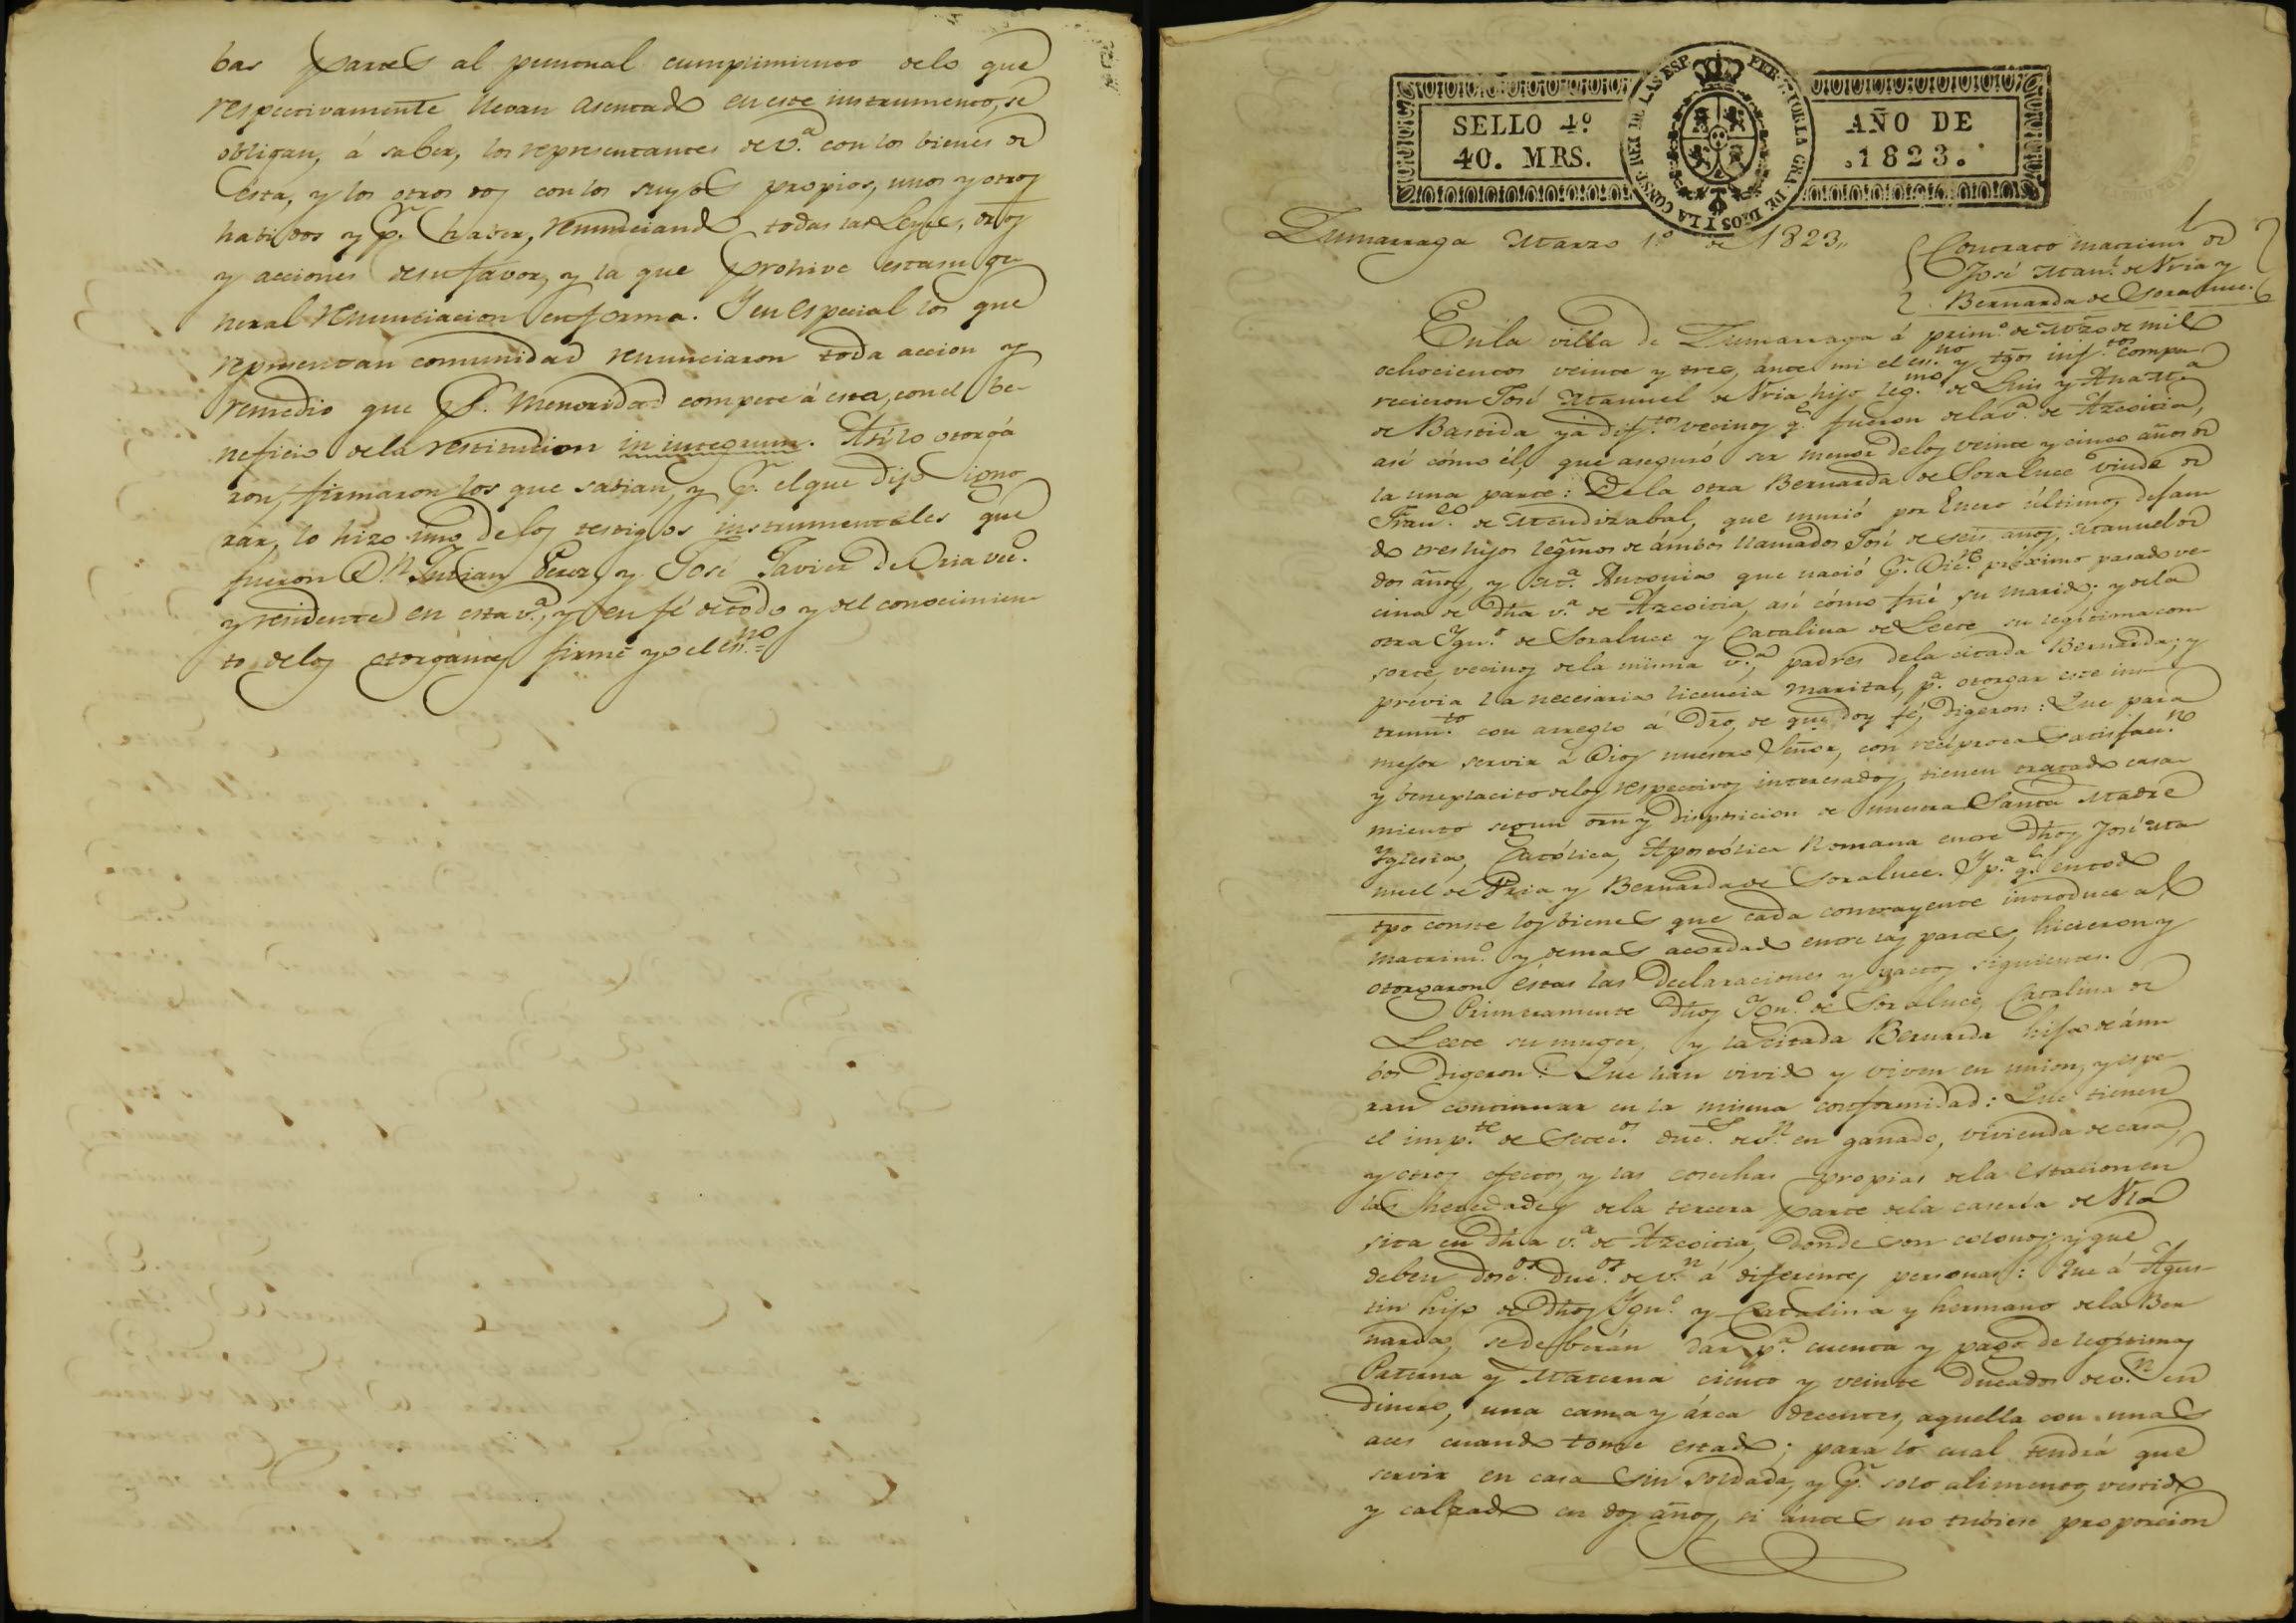 bas partes al puntual cumplimiento delo que
respectivamente llevan asentado en este instrumento, se
obligan, á saber, los representantes de v.ª con los bienes de
esta, y los otros dos con los suyos propios, unos y otros
habidos y p.r haber, renunciando todas las Leyes, dros
y acciones desu favor, y la que prohive estasu ge
neral renunciacion enforma. Y en especial los que
representan comunidad renunciaron toda accion y
remedio que p.r menoridad compete á esta, con el be-
neficio dela restitucion in integrum. Asílo otorgá
ron, firmaron los que sabian, y p.r el que dijo igno
rar, lo hizo uno delos testigos instrumentales que
fueron D.n Julian Perez, y José Javier de Oria vec.º
y residente en esta v.ª, y en fé detodo y del conocimien
to delos otorgantes firmé yo el es.no =
SELLO 4º
40. MRS.
AÑO DE
1823.
FER. 7. POR LA GRA. DE DIOS I LA CONST. REI DE LAS ESP.
Zumarraga Marzo 1.º de 1823,,
Contrato matrim.l de
José Man.l de Vria y
Bernarda de Soraluce.
En la villa de Zumarraga á prim.º de Mrzo de mil
ochocientos veinte y tres, ánte mi el es.no y tgos inf.tos compa
recieron José Manuel de Vria hijo leg.mo de Luis y Ana M.a
de Bastida ya dif.tos vecinos q.e fueron dela v.ª de Azcoitia,
así cómo él, que aseguró ser menor delos veinte y cinco años de
la una parte: Dela otra Bernarda de Soraluce viuda de
Fran.co de Mendizabal, que murió por Enero último, dejan
do tres hijos legmos de ámbos llamados José de seis años, Manuel de
dos años, y M.ª Antonia que nació p.r Dic.re próximo pasado ve-
cina de dha v.ª de Azcoitia, así cómo fué su marido; y dela
otra Ygn.º de Soraluce y Catalina de Lecte su legítima con
sorte, vecinos dela misma v.ª, padres dela citada Bernarda; y
previa la necesaria licencia marital, p.ª otorgar este ins
trum.to con arreglo á Dro, de que doy fé, digeron: Que para
mejor servir á Dios nuestro Señor, con reciproca satisfac.n
y beneplacito delos respectivos interesados, tienen tratado casa-
miento segun orn y disposicion de nuestra Santa Madre
Yglesia, Católica, Apostólica Romana entre dhos José Ma
nuel de Vria y Bernarda de Soraluce. Y p.ª q.e en todo
tpo conste los bienes que cada contrayente introduce al
matrim.º y demas acordado entre las partes, hicieron y
otorgaron éstas las declaraciones y pactos siguientes.
Primeramente dhos Ygn.º de Soraluce, Catalina de
Lecte su muger, y la citada Bernarda hija de ám
bos digeron: Que han vivido y viven en union, y espe
ran continuar en la misma conformidad: Que tienen
el imp.te de Setec.s duc.s de v.n en ganado, vivienda de casa,
y otros efectos, y las cosechas propias dela estacion en
las heredades dela tercera parte dela casería de
sita en dha v.ª de Azcoitia, donde son colonos; y que
deben dosc.os duc.os de v.n á diferentes personas: Que á Agus-
tin hijo de dhos Ygn.º y Catalina y hermano dela Ber
narda, se deberán dar p.ª cuenta y pago de legítimas
Paterna y Materna ciento y veinte Ducados de v.n en
dinero, una cama y árca decentes, aquella con unas
aces cuando tome estado; para lo cual tendrá que
servir en casa sin soldada, y p.r solo alimentos, vestido
y calzado en dos años, si ántes no tubiese proporcion